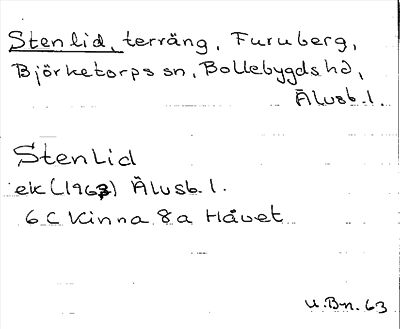 Stenlid, terräng, Furuberg,
Björketorps sn, Bollebygds hd,
Älvsb. l.
Stenlid
ek (1963) Älvsb. l.
6 C Kinna 8a Håvet
U.Bn. 63